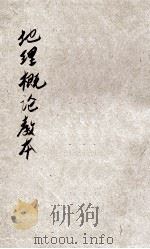 地理概论教本
研狗
mtoou.info